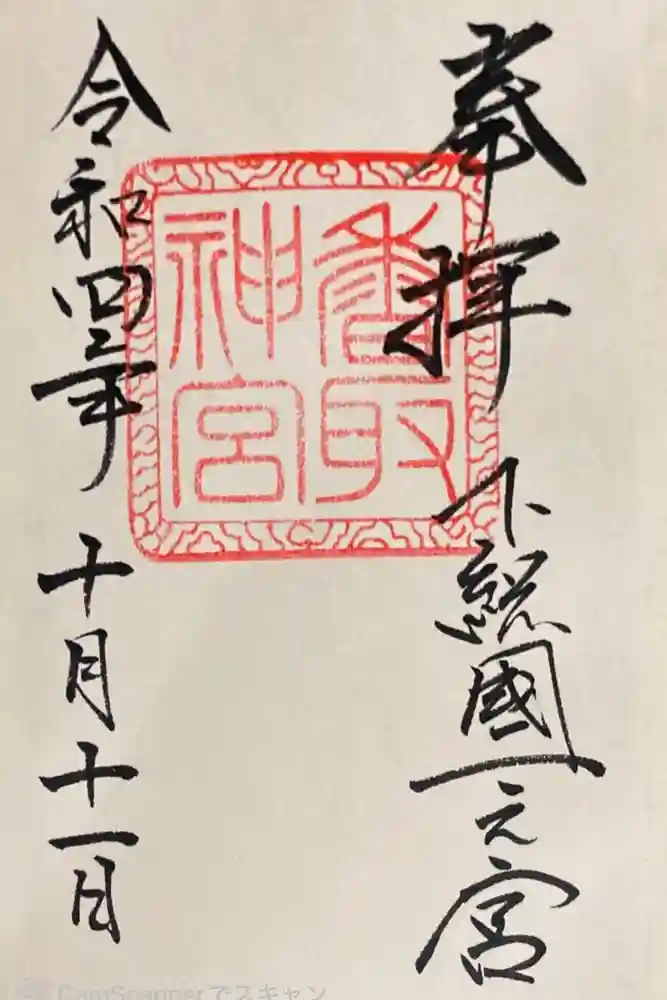 奉拝
下総國一之宮
香取神宮
令和四年十月十一日
CamScannerでスキャン